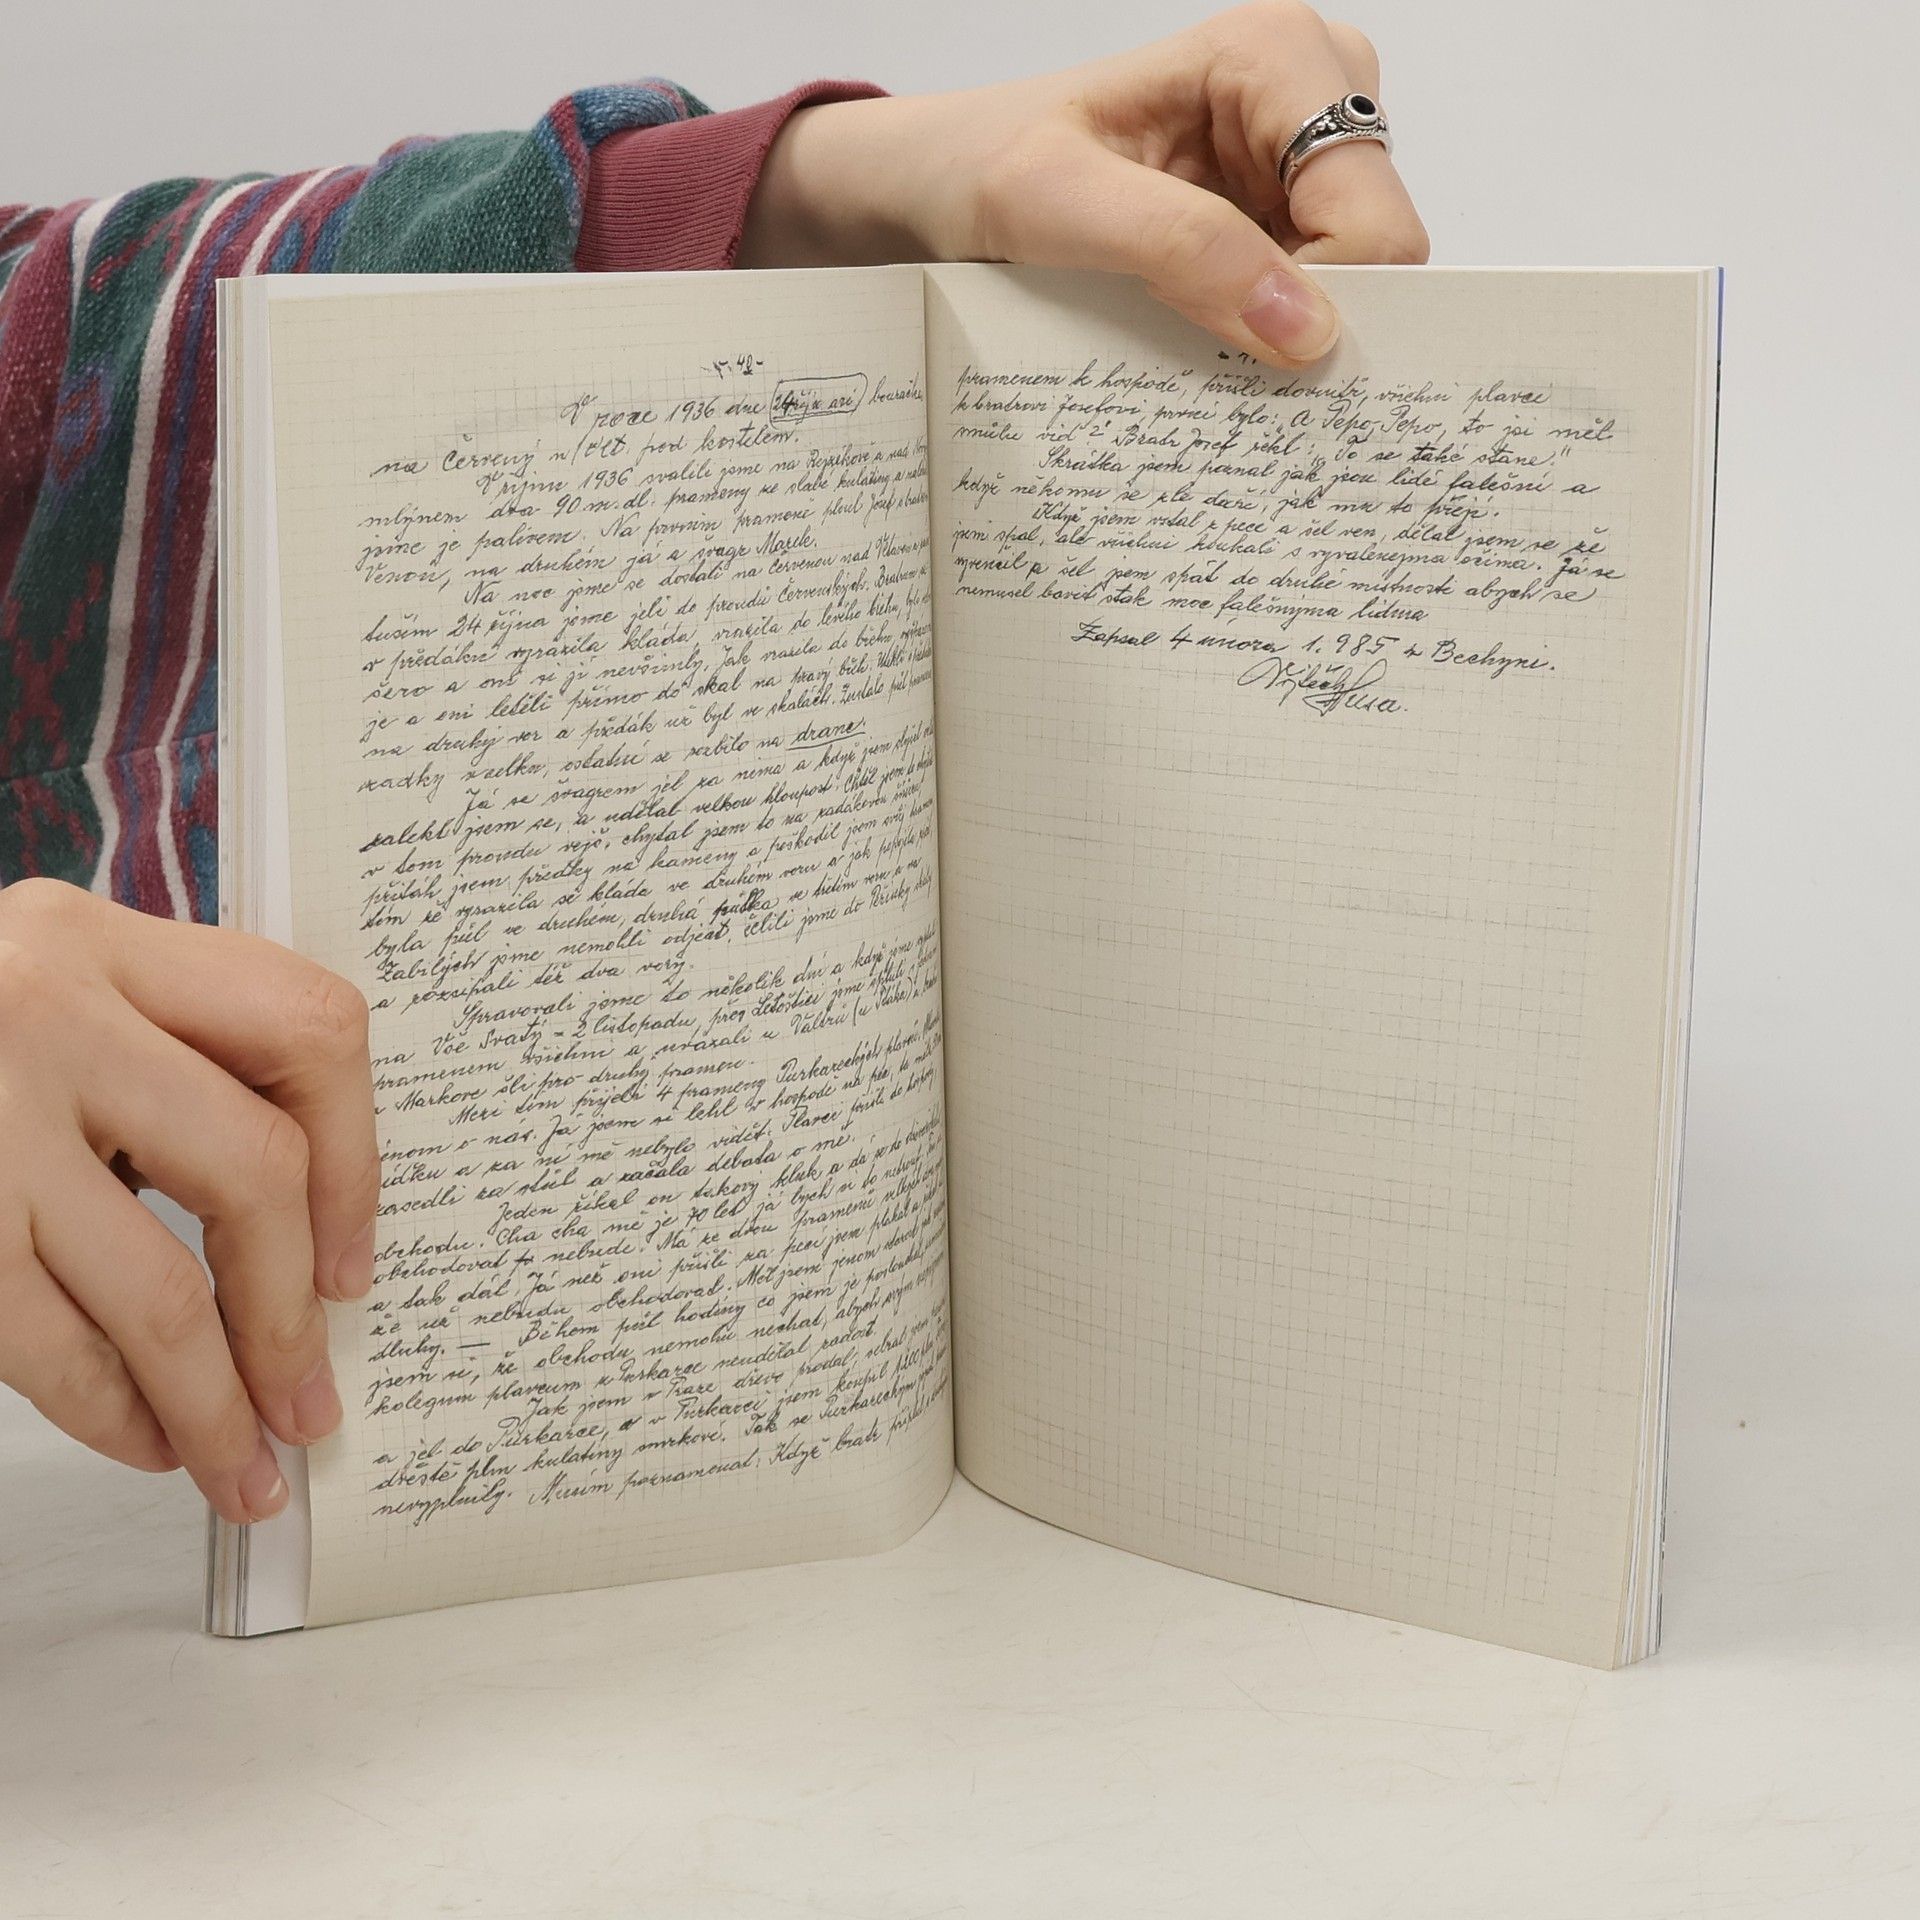 - 42 -
V roce 1936 dne 24 října asi bouračka
na Červený n/Vlt. pod kostelem.
V říjnu 1936 svalili jsme na Rejzíkově a nad
mlýnem dva 90 m. dl. prameny ze slabé kulatiny a
jsme je palivem. Na prvním prameně plul Josef s bratrem
Venou, na druhém já a švagr Marek.
Na noc jsme se dostali na Červenou nad Vltavou a
tuším 24 října jsme jeli do proudů Červenských. Bratrům se
v předáku vyrazila kláda, vrazila do levého břehu, bylo
šero a oni si jí nevšimly. Jak vrazila do břehu,
je a oni letěli přímo do skal na pravý břeh. Utekli
na druhý vor a předák už byl ve skalách. Zůstalo půl pramene
zadky vcelku, ostatní se rozbilo na dranc.
Já se švagrem jel za nima a když jsem
zalekl jsem se, a udělal velkou kloupost. Chtěl jsem to
v tom proudu vejš, chytal jsem to na zadákovou
přitáh jsem předky na kameny a poškodil jsem svůj pramen
tím že vyrazila se kláda ve druhém voru a jak
byla půl ve druhém, druhá půlka ve třetím voru a na
Zabilých jsme nemohli odject. Čélili jsme do skály
a rozsipali též dva vory.
Spravovali jsme to několik dní a když jsme
na Vše Svatý - 2 listopadu, přes Letoštici jsme
pramenem všichni a uvázali u Valtrů (u Ptáka)
u Markove šli pro druhý pramen.
Mezi tím přijeli 4 prameny Purkareckých plavců.
énom o nás. Já jsem si lehl v hospodě na pec, to měli
idku a za ní mě nebylo vidět. Plavci přišli do hospody
zasedli za stůl a začala debata o mě.
Jeden říkal on takový kluk a dá se do
obchodu. Cha cha mě je 70 let já bych si to netrouf
obchodovat nebude. Má ze dvou pramenů
a tak dál. Já než oni přišli za pecí jsem plakal a
že už nebudu obchodovat. Měl jsem jenom starost
dluhy. — Během půl hodiny co jsem je poslouchal,
jsem si, že obchodu nemohu nechat, abych svým
kolegum plavcum z Purkarce neudělal radost.
Jak jsem v Praze dřevo prodal, sebral jsem
a jel do Purkarce, a v Purkarci jsem koupil 1200
dřéstě plm kulatiny smrkové. Tak se Purkareckým
nevyplnily. Musím poznamenat: Když bratr připlul s
pramenem k hospodě, přišli dovnitř, všichni plavci
k bratrovi Josefovi, první bylo: „A Pepo, Pepo, to jsi měl
smůlu viď?" Bradr Josef řekl: „To se také stane."
Skrátka jsem poznal jak jsou lidé falešní a
když někomu se zle daří, jak mu to přejí.
Když jsem vstal z pece a šel ven, dělal jsem se že
jsem spal, ale všichni koukali s vyvalenejma očima. Já se
vyvenčil a šel jsem spát do druhé místnosti abych se
nemusel bavit s tak moc falešnýma lidma
Zapsal 4 února 1.985 v Bechyni.
Vojtěch Husa.